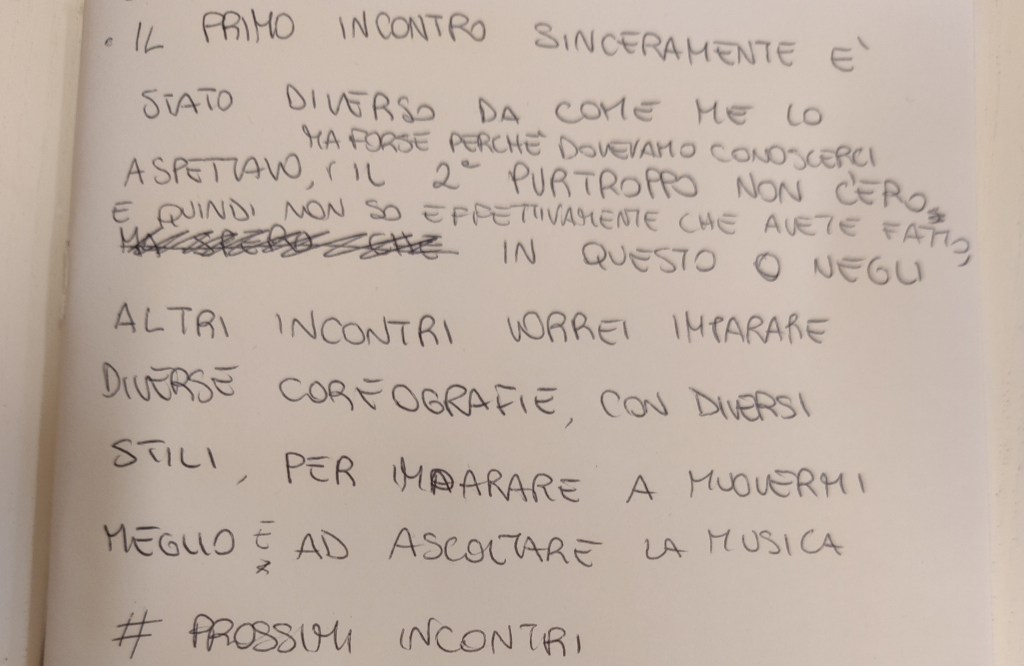 . IL PRIMO INCONTRO SINCERAMENTE E'
STATO DIVERSO DA COME ME LO
MA FORSE PERCHÈ DOVEVAMO CONOSCERCI
ASPETTAVO, IL 2° PURTROPPO NON C'ERO
E QUINDI NON SO EFFETTIVAMENTE CHE AVETE FATTO,
MA SPERO CHE IN QUESTO O NEGLI
ALTRI INCONTRI VORREI IMPARARE
DIVERSE COREOGRAFIE, CON DIVERSI
STILI, PER IMPARARE A MUOVERMI
MEGLIO E AD ASCOLTARE LA MUSICA
# PROSSIMI INCONTRI